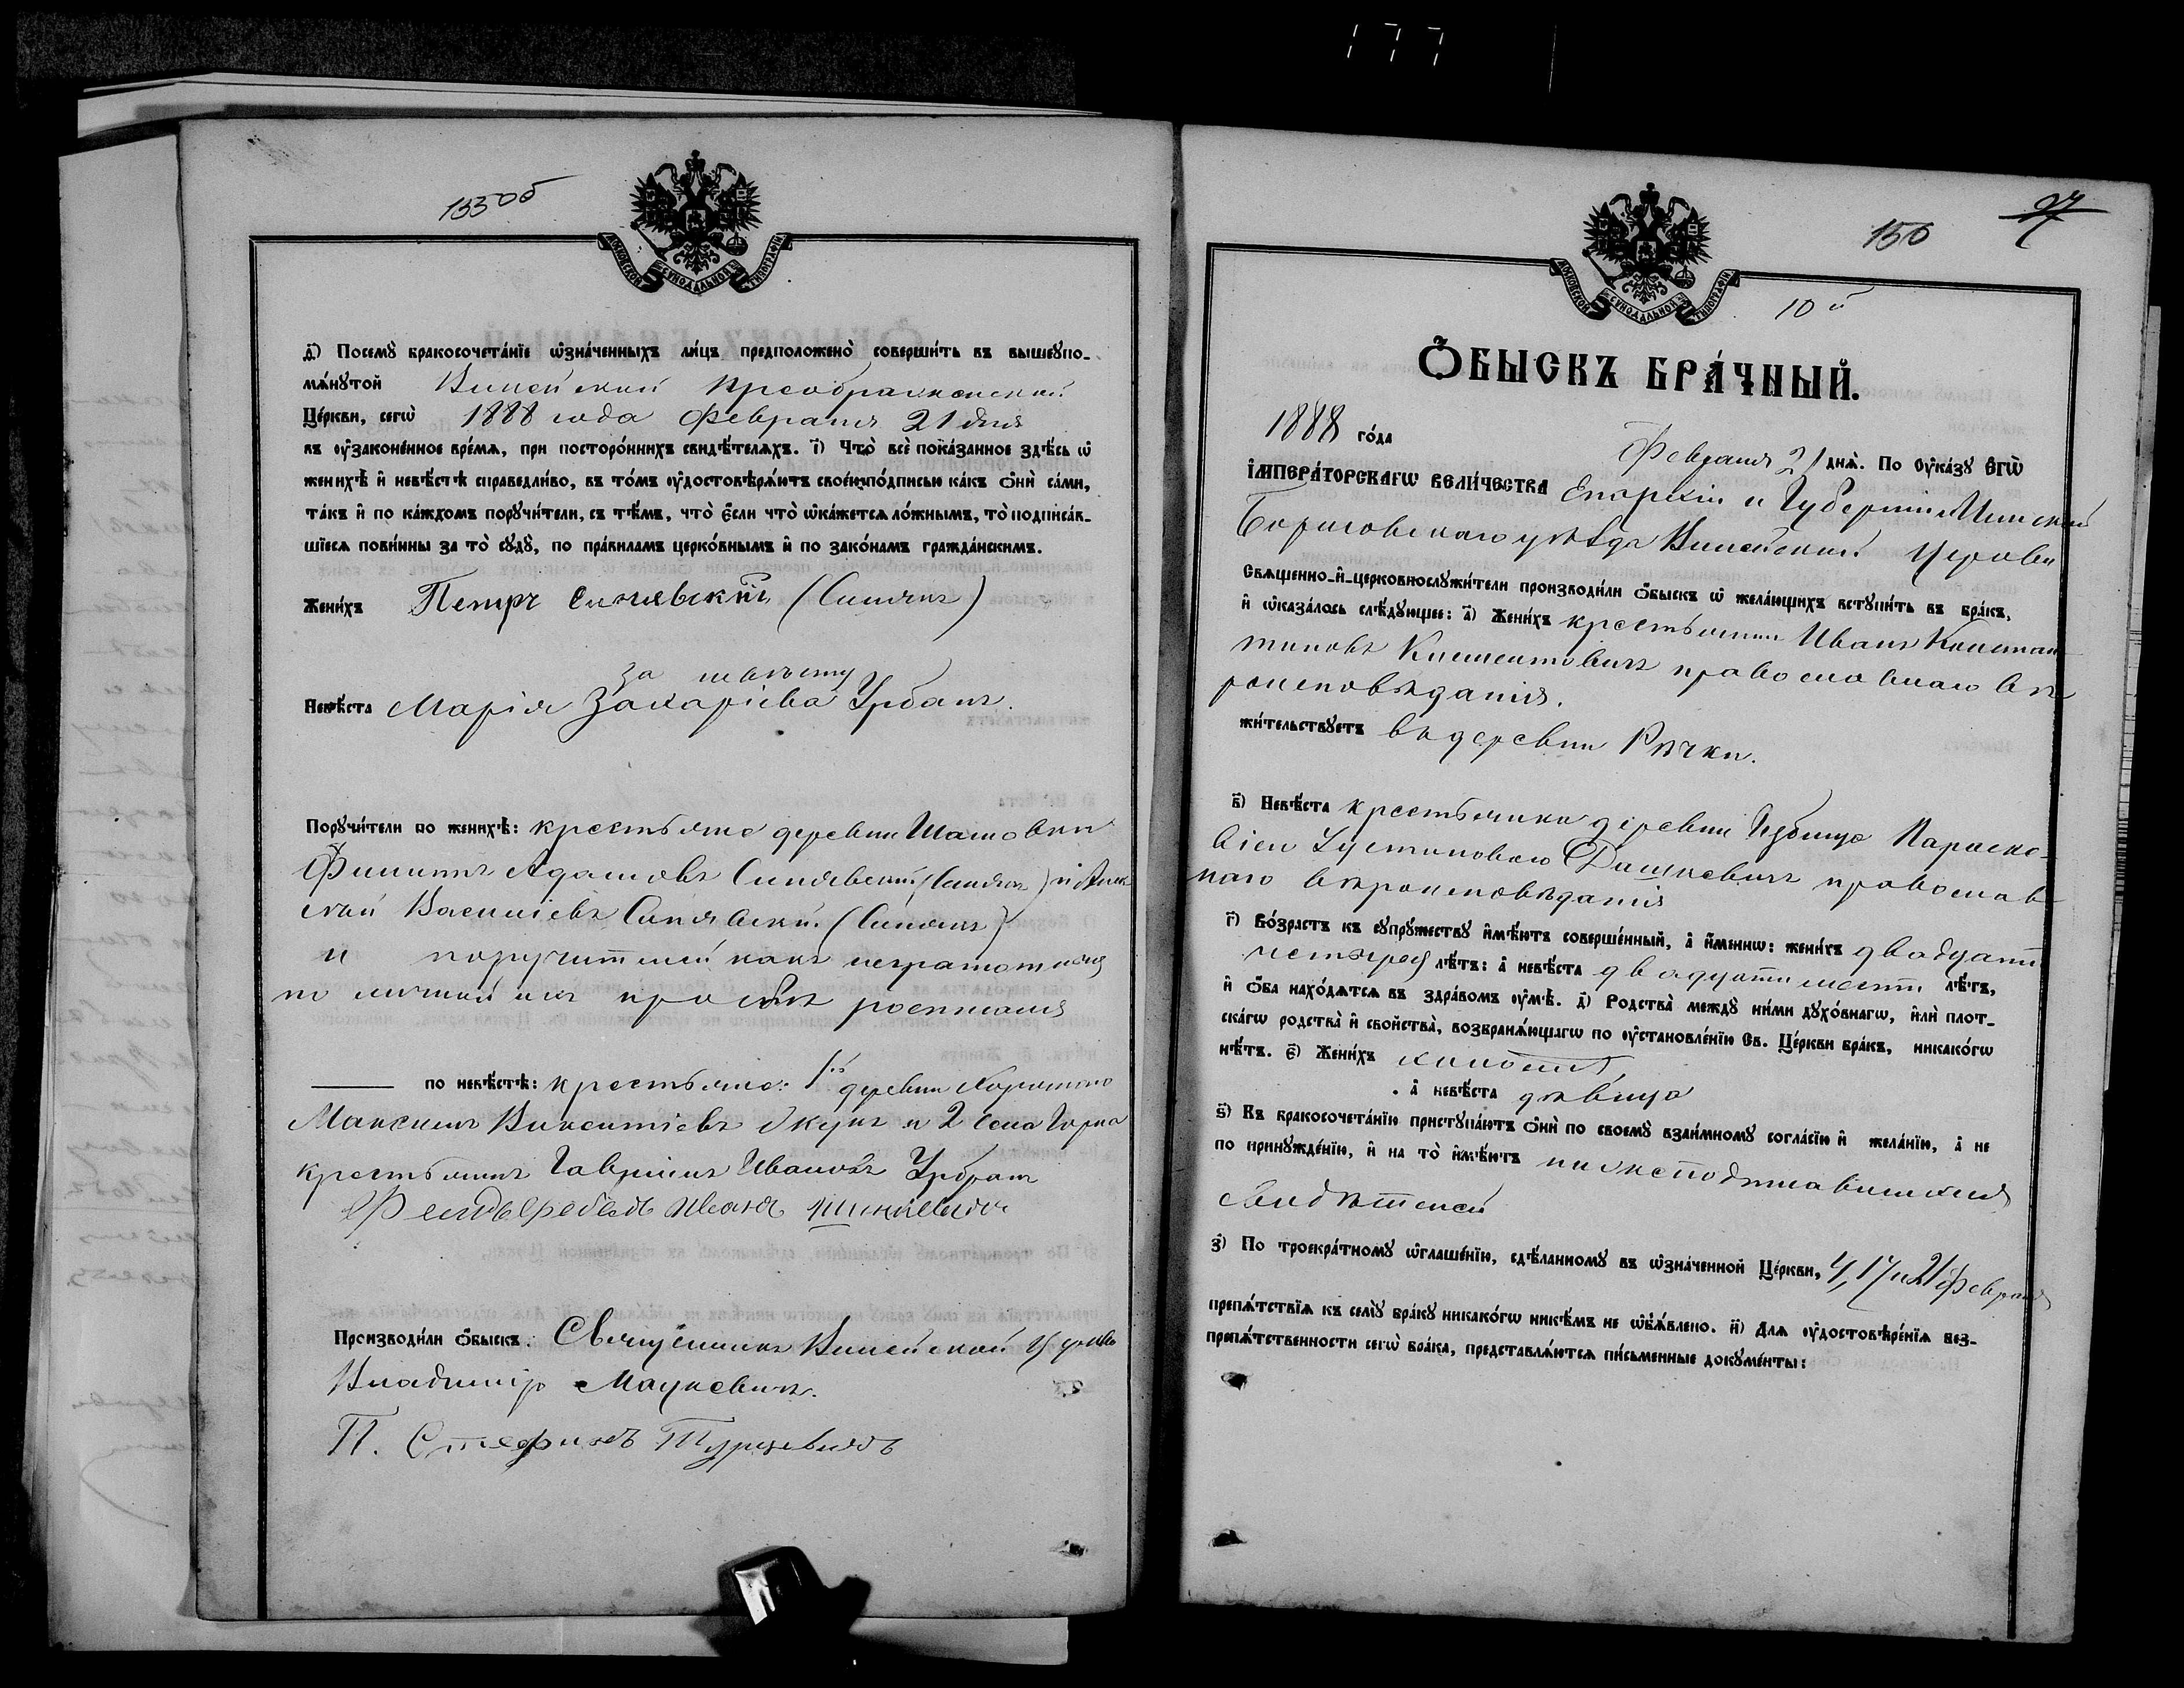 177
133об
МОСКОВСКОЙ СѴНОДАЛЬНОЙ ТИПОГРАФІИ
д҃) Посемꙋ̀ бракосочета́нїе ѡ҆зна́ченныхъ ли́цъ предположено̀ соверши́ть въ вышеꙋпо-
мѧ́нꙋтой Вилейской Преображенской
Це́ркви, сегѡ̀ 1888 года Февраля 21 дня
въ ѹ҆зако́ненное вре́мѧ, при посторо́ннихъ свидѣ́телѧхъ. і҃) Что̀ всѐ пока́занное здѣ́сь ѡ҆
женихѣ̀ и҆ невѣ́стѣ справедли́во, въ то́мъ ѹ҆достовѣрѧ́ютъ свое́ю по́дписью ка́къ ѻ҆нѝ са́ми,
та́къ и҆ по ка́ждомъ порꙋчи́тели, съ тѣ́мъ, что̀ є҆́сли что̀ ѡ҆ка́жетсѧ ло́жнымъ, то̀ подписа́в-
шїесѧ пови́нны за то̀ сꙋдꙋ̀, по пра́виламъ церко́внымъ и҆ по зако́намъ гражда́нскимъ.
Жени́хъ Петръ Синявскій (Синякъ)
за невѣсту
Невѣ́ста Марія Захаріева Урбанъ.
Порꙋчи́тели по женихѣ̀: крестьяне деревни Шашовки
Филиппъ Адамовъ Синявскій (Синякъ) и Алек
сѣй Василіевъ Синявскій (Синякъ)
и поручителей какъ неграмотныхъ
по личной ихъ просьбѣ росписался
по невѣ́стѣ: крестьяне: 1.й деревни
Максимъ Викентіевъ Якукъ и 2 села
крестьянинъ Гавріилъ Ивановъ Урбанъ
Фельдфебель Иванъ
Производи́ли ѻ҆́быскъ. Священникъ Вилейской Церкви
Владиміръ Мацкевичъ.
П. Стефанъ Турцевичъ
150 27
МОСКОВСКОЙ СѴНОДАЛЬНОЙ ТИПОГРАФІИ
10й
Ѻ҆́БЫСКЪ БРА́ЧНЫЙ.
1888 го́да Февраля 21 днѧ̀. По ѹ҆ка́зꙋ Є҆гѡ̀
І҆мпера́торскагѡ вели́чества Епархіи и Губерніи Минской
Борисовскаго уѣзда Вилейской Церкви
Свѧщенно-и҆-церковнослꙋжи́тели производи́ли ѻ҆́быскъ ѡ҆ жела́ющихъ встꙋпи́ть въ бра́къ,
и҆ ѡ҆каза́лось слѣ́дꙋющее: а҃) Жени́хъ крестьянинъ Иванъ Констан
тиновъ Климентовичъ православнаго вѣ
роисповѣданія.
жи́тельствꙋетъ въ деревни Рѣчки.
в҃) Невѣ́ста крестьянка деревни Избища Параске-
віею Іустиновою Дашкевичъ православ
наго вѣроисповѣданія
г҃) Во́зрастъ къ сꙋпрꙋ́жествꙋ и҆мѣ́ютъ соверше́нный, а҆ и҆́меннѡ: жени́хъ двадцати
четырехъ лѣ́тъ: а҆ невѣ́ста двадцати шести лѣ́тъ,
и҆ ѻ҆́ба нахо́дѧтсѧ въ здра́вомъ ѹ҆мѣ̀. д҃) Родства̀ междꙋ ни́ми дꙋхо́внагѡ, и҆лѝ плот-
ска́гѡ родства̀ и҆ свойства̀, возбранѧ́ющагѡ по ѹ҆становле́нїю Св. Це́ркви бра́къ, никако́гѡ
нѣ́тъ. є҃) Жени́хъ холостъ,
а҆ невѣ́ста дѣвица
ѕ҃) Къ бракосочета́нїю пристꙋпа́ютъ ѻ҆нѝ по своемꙋ̀ взаи́мномꙋ согла́сїю и҆ жела́нїю, а҆ не
по принꙋжде́нїю, и҆ на то̀ и҆мѣ́ютъ нижеподписавшихся
свидѣтелей
з҃) По троекра́тномꙋ ѡ҆глаше́нїю, сдѣ́ланномꙋ въ ѡ҆зна́ченной Це́ркви, 4, 17 и 21 Февраля
препѧ́тствїѧ къ семꙋ̀ бра́кꙋ никако́гѡ никѣ́мъ не ѡ҆б̾ѧ́влено. и҃) Длѧ ѹ҆достовѣре́нїѧ без-
препѧ́тственности сегѡ̀ бра́ка, представлѧ́ютсѧ пи́сьменные докꙋме́нты: